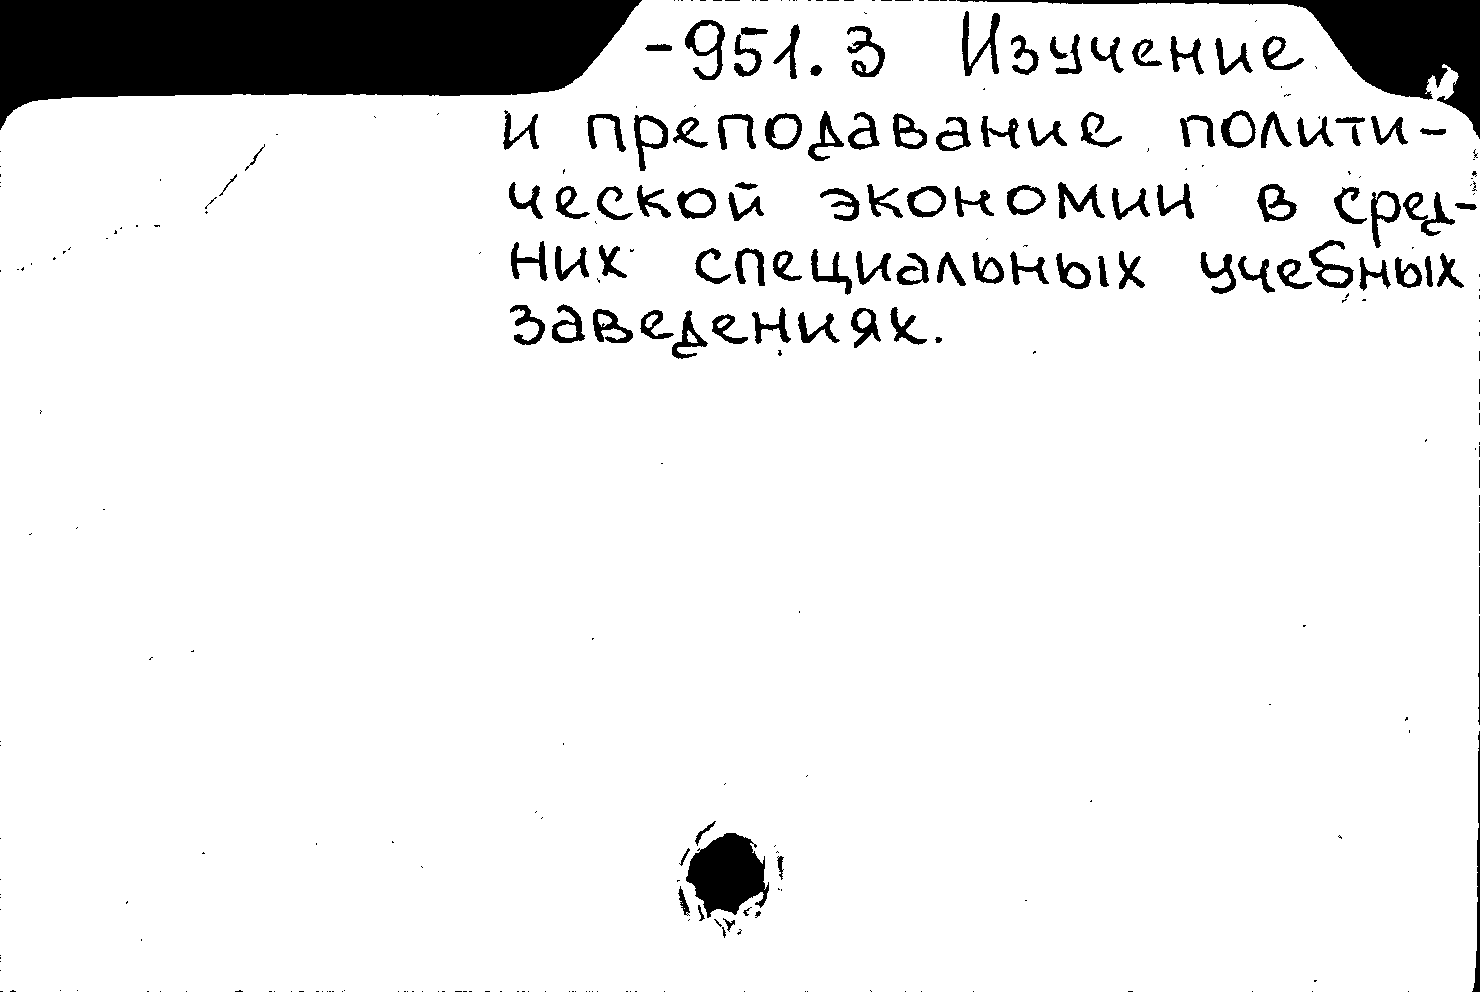 -951.3 Изучение
и преподавание полити-
ческой экономии в сред-
них специальных учебных
заведениях.